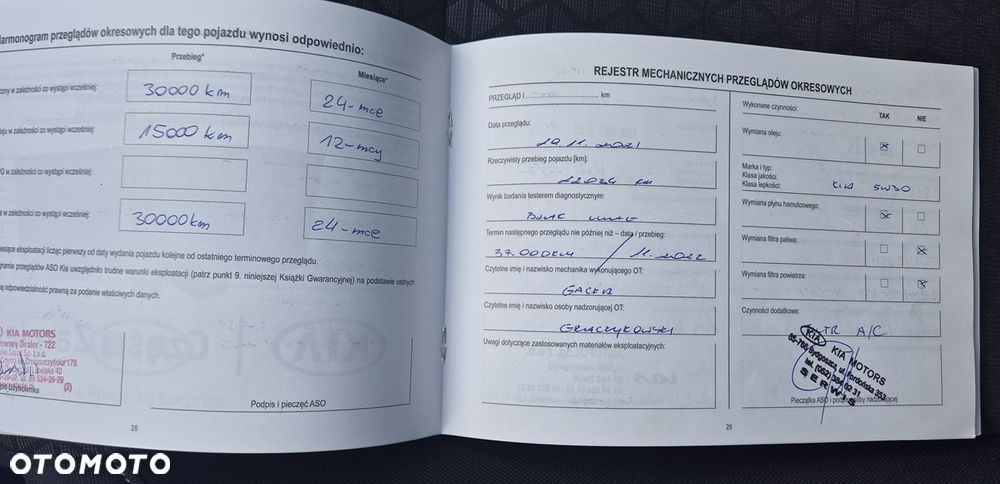 armonogram przeglądów okresowych dla tego pojazdu wynosi odpowiednio:
Przebieg*
Miesiące*
czny w zależności co wystąpi wcześniej:
30000 km
24-mce
leju w zależności co wystąpi wcześniej:
15000 km
12-mcy
G w zależności co wystąpi wcześniej:
a w zależności co wystąpi wcześniej:
30000 km
24-mce
esiące eksploatacji licząc pierwszy od daty wydania pojazdu kolejne od ostatniego terminowego przeglądu.
gramie przeglądów ASO Kia uwzględniło trudne warunki eksploatacji (patrz punkt 9. niniejszej Książki Gwarancyjnej) na podstawie ustnych
ą odpowiedzialność prawną za podanie właściwych danych.
KIA MOTORS
Dealer - 722
(2)
pis użytkownika
Podpis i pieczęć ASO
28
REJESTR MECHANICZNYCH PRZEGLĄDÓW OKRESOWYCH
PRZEGLĄD I .............................. km
Data przeglądu:
29.11.2021
Rzeczywisty przebieg pojazdu [km]:
22034 km
Wynik badania testerem diagnostycznym:
BRAK
Termin następnego przeglądu nie później niż – data / przebieg:
37.000km / 11.2022
Czytelne imię i nazwisko mechanika wykonującego OT:
GACKA
Czytelne imię i nazwisko osoby nadzorującej OT:
GRACZYKOWSKI
Uwagi dotyczące zastosowanych materiałów eksploatacyjnych:
Wykonane czynności:
TAK NIE
Wymiana oleju:
Marka i typ:
Klasa jakości:
Klasa lepkości:
KIA 5W30
Wymiana płynu hamulcowego:
Wymiana filtra paliwa:
Wymiana filtra powietrza:
Czynności dodatkowe:
FILTR A/C
KIA KIA MOTORS
85-766 Bydgoszcz, ul. Fordońska 353
SERWIS
Pieczątka ASO i podpis osoby nadzorującej
29
OTOMOTO